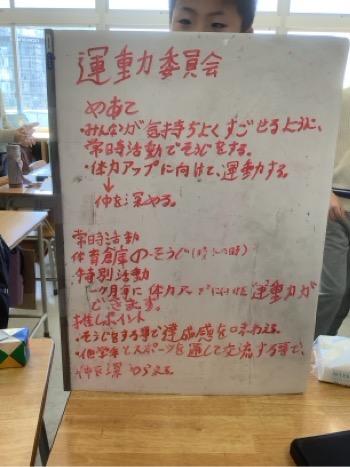 運動力委員会
めあて
・みんなが気持ちよくすごせるように、
常時活動でそうじをする。
・体力アップに向けて、運動する。
↓
仲を深める。
常時活動
体育倉庫のそうじ
特別活動
一ヶ月毎に体力アップに向けた運動力が
できます。
推しポイント
・そうじをする事で達成感を味わえる。
・他学年とスポーツを通して交流する事で、
仲を深められる。